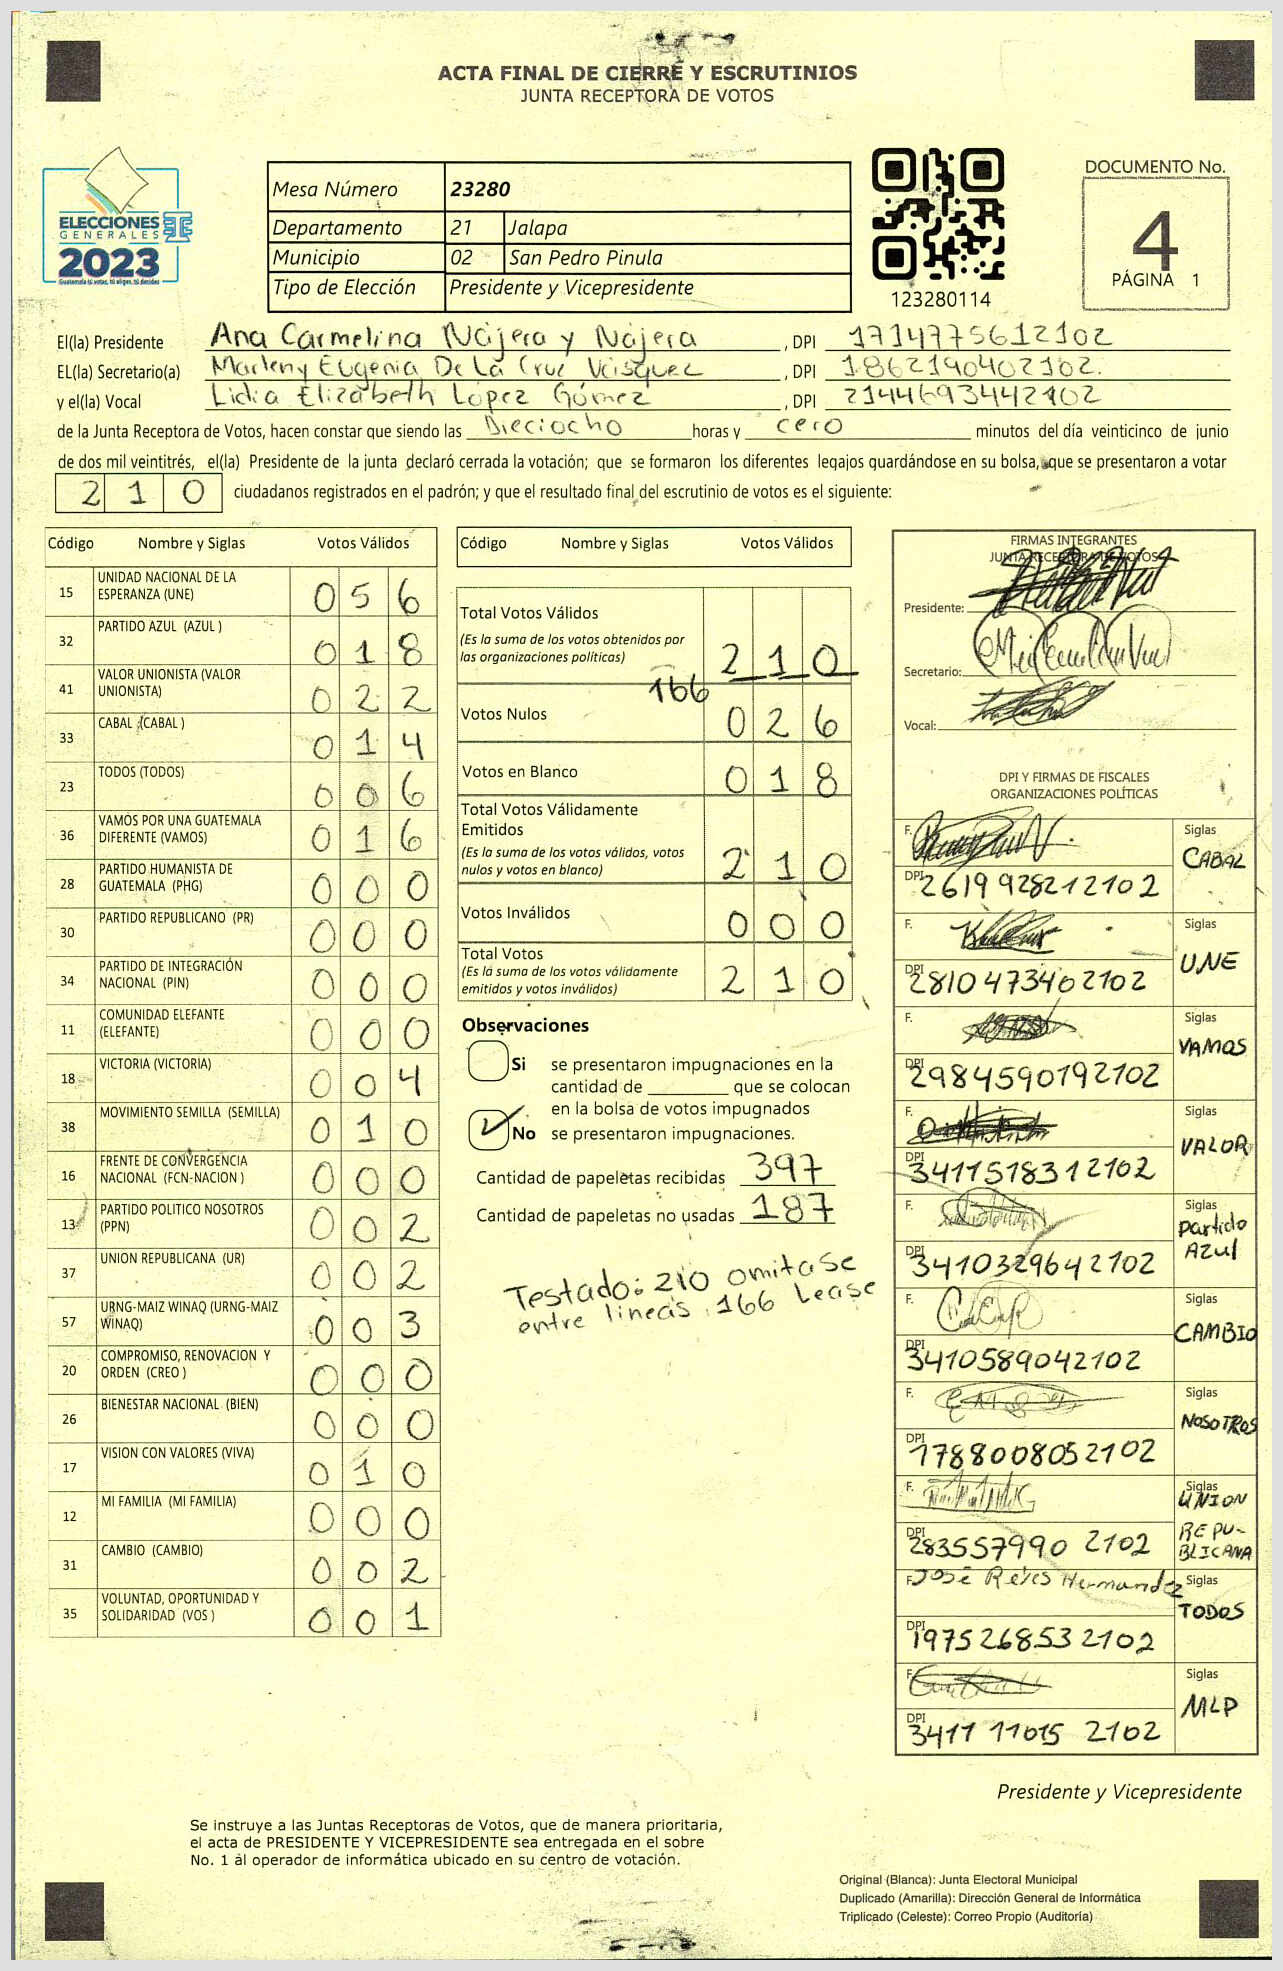 ACTA FINAL DE CIERRE Y ESCRUTINIOS
JUNTA RECEPTORA DE VOTOS
ELECCIONES
GENERALES
2023
Guatemala tú votas, tú eliges, tú decides
Mesa Número 23280
Departamento 21 Jalapa
Municipio 02 San Pedro Pinula
Tipo de Elección Presidente y Vicepresidente
123280114
DOCUMENTO No.
4
PÁGINA 1
El(la) Presidente Ana Carmelina Nájera y Nájera, DPI 1714775612102
EL(la) Secretario(a) Marleny Eugenia De La Cruz Vásquez, DPI 1862190402102.
y el(la) Vocal Lidia Elizabeth López Gómez, DPI 2144693442102
de la Junta Receptora de Votos, hacen constar que siendo las Dieciocho horas y cero minutos del día veinticinco de junio
de dos mil veintitrés, el(la) Presidente de la junta declaró cerrada la votación; que se formaron los diferentes legajos guardándose en su bolsa, que se presentaron a votar
210 ciudadanos registrados en el padrón; y que el resultado final del escrutinio de votos es el siguiente:
Código Nombre y Siglas Votos Válidos
15 UNIDAD NACIONAL DE LA ESPERANZA (UNE) 056
32 PARTIDO AZUL (AZUL ) 018
41 VALOR UNIONISTA (VALOR UNIONISTA) 022
33 CABAL (CABAL ) 014
23 TODOS (TODOS) 006
36 VAMOS POR UNA GUATEMALA DIFERENTE (VAMOS) 016
28 PARTIDO HUMANISTA DE GUATEMALA (PHG) 000
30 PARTIDO REPUBLICANO (PR) 000
34 PARTIDO DE INTEGRACIÓN NACIONAL (PIN) 000
11 COMUNIDAD ELEFANTE (ELEFANTE) 000
18 VICTORIA (VICTORIA) 004
38 MOVIMIENTO SEMILLA (SEMILLA) 010
16 FRENTE DE CONVERGENCIA NACIONAL (FCN-NACION ) 000
13 PARTIDO POLITICO NOSOTROS (PPN) 002
37 UNION REPUBLICANA (UR) 002
57 URNG-MAIZ WINAQ (URNG-MAIZ WINAQ) 003
20 COMPROMISO, RENOVACION Y ORDEN (CREO ) 000
26 BIENESTAR NACIONAL (BIEN) 000
17 VISION CON VALORES (VIVA) 010
12 MI FAMILIA (MI FAMILIA) 000
31 CAMBIO (CAMBIO) 002
35 VOLUNTAD, OPORTUNIDAD Y SOLIDARIDAD (VOS ) 001
Código Nombre y Siglas Votos Válidos
Total Votos Válidos
(Es la suma de los votos obtenidos por
las organizaciones políticas) 210
166
Votos Nulos 026
Votos en Blanco 018
Total Votos Válidamente
Emitidos
(Es la suma de los votos válidos, votos
nulos y votos en blanco) 210
Votos Inválidos 000
Total Votos
(Es la suma de los votos válidamente
emitidos y votos inválidos) 210
Observaciones
Si se presentaron impugnaciones en la
cantidad de ________ que se colocan
en la bolsa de votos impugnados
No se presentaron impugnaciones.
Cantidad de papeletas recibidas 397
Cantidad de papeletas no usadas 187
Testado: 210 omitase
entre lineas 166 Lease
FIRMAS INTEGRANTES
JUNTA RECEPTORA DE VOTOS
Presidente:
Secretario:
Vocal:
DPI Y FIRMAS DE FISCALES
ORGANIZACIONES POLÍTICAS
F. Siglas CABAL
DPI 2619928212102
F. Siglas UNE
DPI 2810473402102
F. Siglas VAMOS
DPI 2984590192102
F. Siglas VALOR
DPI 3411518312102
F. Siglas Partido Azul
DPI 3410329642102
F. Siglas CAMBIO
DPI 3410589042102
F. Siglas NOSOTROS
DPI 1788008052102
F. Siglas UNION REPU-BLICANA
DPI 283557990 2102
F. José Reyes Hernandez Siglas TODOS
DPI 1975268532102
F. Siglas MLP
DPI 3411 11015 2102
Presidente y Vicepresidente
Se instruye a las Juntas Receptoras de Votos, que de manera prioritaria,
el acta de PRESIDENTE Y VICEPRESIDENTE sea entregada en el sobre
No. 1 al operador de informática ubicado en su centro de votación.
Original (Blanca): Junta Electoral Municipal
Duplicado (Amarilla): Dirección General de Informática
Triplicado (Celeste): Correo Propio (Auditoría)